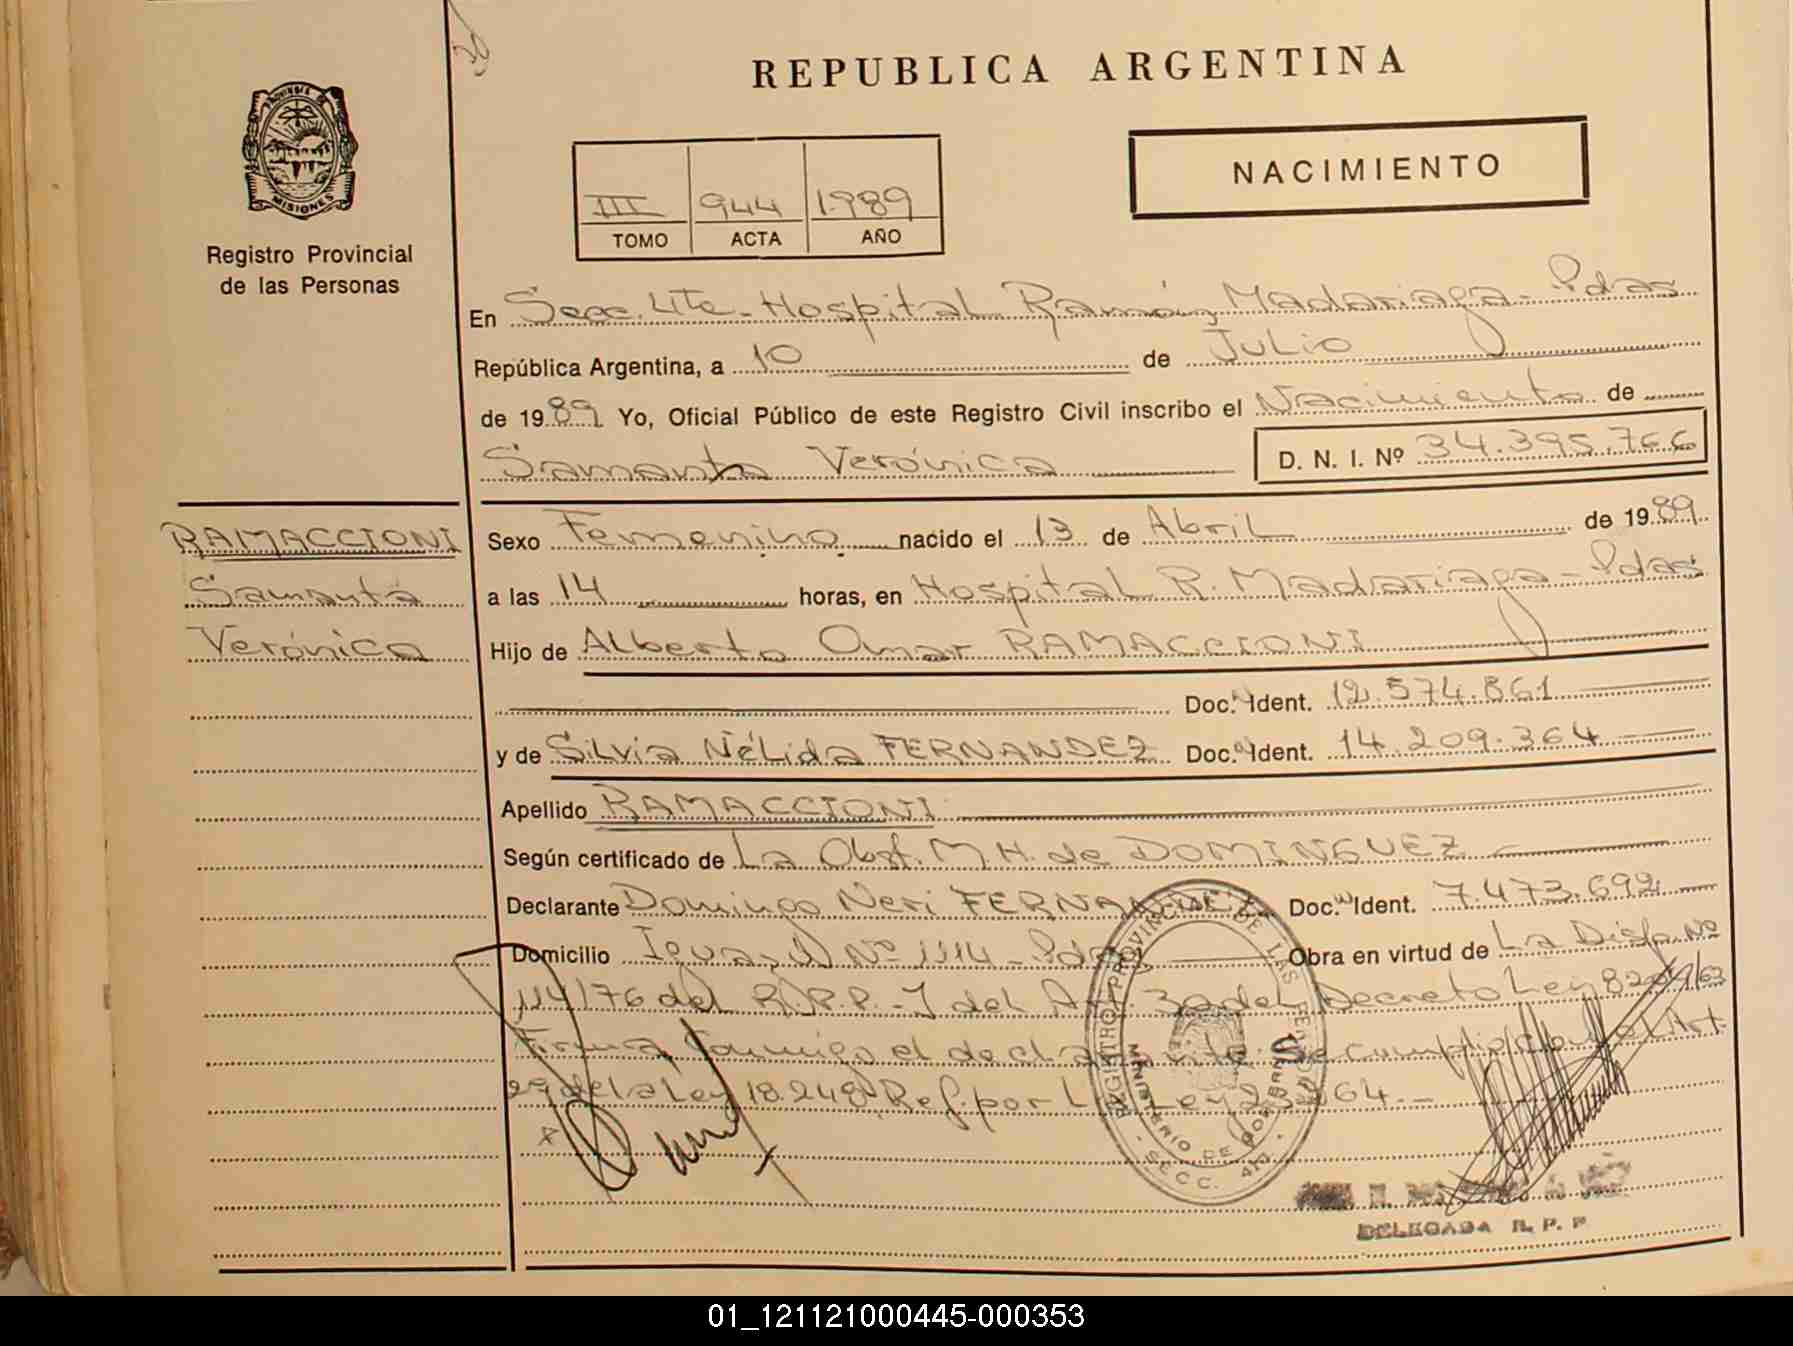 REPUBLICA ARGENTINA
PROVINCIA DE
MISIONES
Registro Provincial
de las Personas
III 944 1989
TOMO ACTA AÑO
NACIMIENTO
En Secc. 4te. Hospital Ramón Madariaga - Pdas
República Argentina, a 10 de Julio
de 1989 Yo, Oficial Público de este Registro Civil inscribo el Nacimiento de
Samanta Verónica D. N. I. Nº 34.395.766
RAMACCIONI
Samanta
Verónica
Sexo Femenino nacido el 13 de Abril de 1989
a las 14 horas, en Hospital R. Madariaga - Pdas
Hijo de Alberto Omar RAMACCIONI
Doc. Ident. 12.574.861
y de Silvia Nélida FERNANDEZ Doc. Ident. 14.209.364
Apellido RAMACCIONI
Según certificado de La Obst. M H. de DOMINGUEZ
Declarante Domingo Neri FERNANDEZ Doc. Ident. 7.473.692
Domicilio Iguazú Nº 1114 - Pdas Obra en virtud de La Disp. Nº
114/76 del R.P.P. - J del Art. 30 del Decreto Ley 8204/63
Firma conmigo el declarante. Se cumplió con el Art.
29 de la Ley 18.248 Ref. por La Ley 23.264. -
REGISTRO PROVINCIAL DE LAS PERSONAS
MINISTERIO DE GOBIERNO
SECC. 4ta
DELEGADA R. P. P
01_121121000445-000353